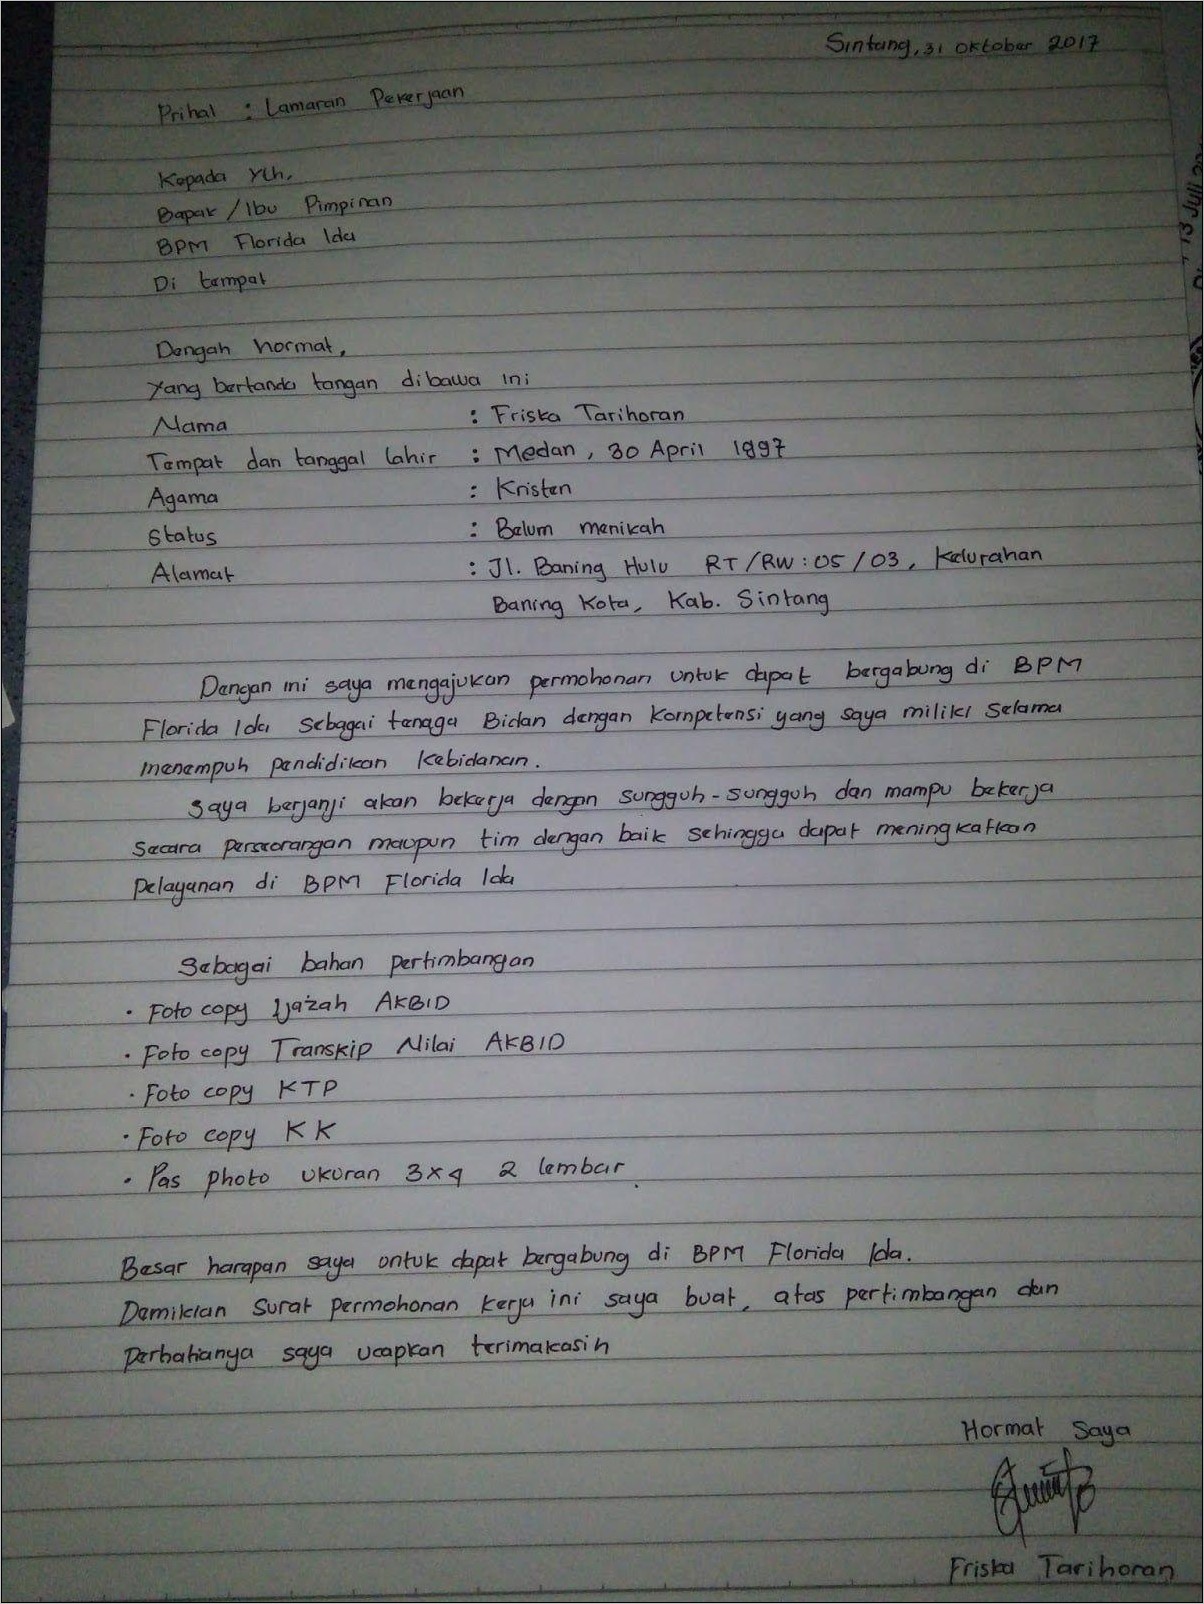 Sintang, 31 Oktober 2017
Prihal : Lamaran Pekerjaan
Kepada Yth,
Bapak / Ibu Pimpinan
BPM Florida Ida
Di tempat
Dengah hormat,
Yang bertanda tangan dibawa ini
Nama : Friska Tarihoran
Tempat dan tanggal lahir : Medan, 30 April 1997
Agama : Kristen
Status : Belum menikah
Alamat : Jl. Baning Hulu RT/RW : 05/03, Kelurahan
Baning Kota, Kab. Sintang
Dengan ini saya mengajukan permohonan untuk dapat bergabung di BPM
Florida Ida sebagai tenaga Bidan dengan Kompetensi yang saya miliki selama
menempuh pendidikan Kebidanan.
Saya berjanji akan bekerja dengan sungguh-sungguh dan mampu bekerja
secara perseorangan maupun tim dengan baik sehingga dapat meningkatkan
Pelayanan di BPM Florida Ida
Sebagai bahan pertimbangan
• Foto copy Ijazah AKBID
• Foto copy Transkip Nilai AKBID
• Foto copy KTP
• Foto copy KK
• Pas photo ukuran 3x4 2 lembar.
Besar harapan saya untuk dapat bergabung di BPM Florida Ida.
Demikian surat permohonan kerja ini saya buat, atas pertimbangan dan
Perhatianya saya ucapkan terimakasih
Hormat Saya
Friska Tarihoran
13 Juli